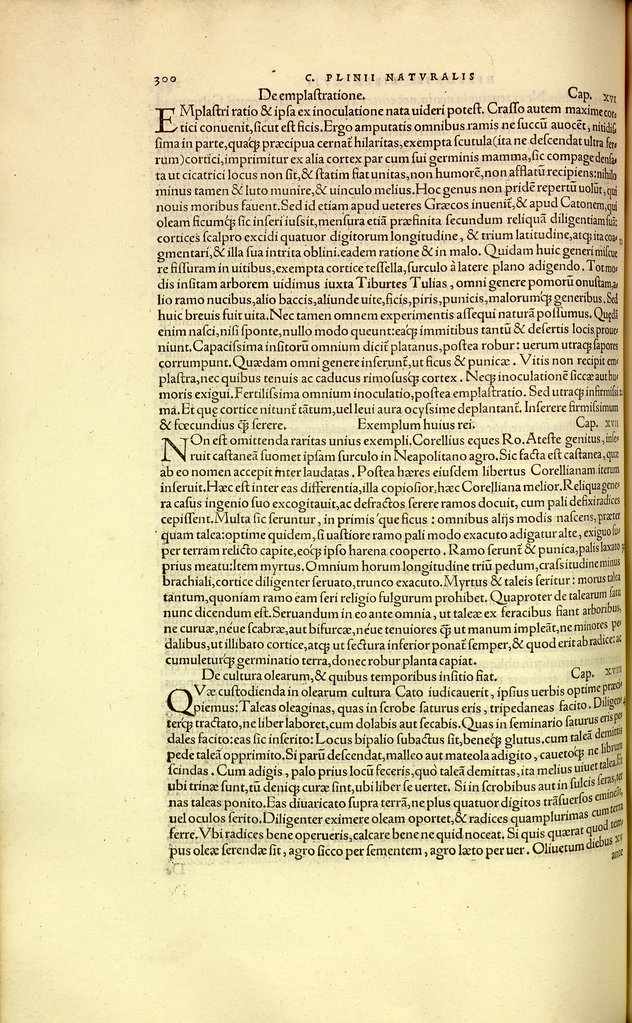 300 C. PLINII NATVRALIS
De emplastratione. Cap. xvi
EMplastri ratio & ipsa ex inoculatione nata uideri potest. Crasso autem maxime cor-
tici conuenit, sicut est ficis. Ergo amputatis omnibus ramis ne succũ auocẽt, nitidis-
sima in parte, quaq́; præcipua cernat̃ hilaritas, exempta scutula (ita ne descendat ultra fer-
rum) cortici, imprimitur ex alia cortex par cum sui germinis mamma, sic compage densa-
ta ut cicatrici locus non sit, & statim fiat unitas, non humorẽ, non afflatũ recipiens: nihilo
minus tamen & luto munire, & uinculo melius. Hoc genus non pridẽ repertũ uolũt, qui
nouis moribus fauent. Sed id etiam apud ueteres Græcos inuenit̃, & apud Catonem, qui
oleam ficumq́; sic inseri iussit, mensura etiã præfinita secundum reliquã diligentiam suã:
cortices scalpro excidi quatuor digitorum longitudine, & trium latitudine, atq́; ita coa-
gmentari, & illa sua intrita oblini. eadem ratione & in malo. Quidam huic generi miscue
re fissuram in uitibus, exempta cortice tessella, surculo à latere plano adigendo. Tot mo-
dis insitam arborem uidimus iuxta Tiburtes Tulias, omni genere pomorũ onustam, a-
lio ramo nucibus, alio baccis, aliunde uite, ficis, piris, punicis, malorumq́; generibus. Sed
huic breuis fuit uita. Nec tamen omnem experimentis assequi naturã possumus. Quædã
enim nasci, nisi sponte, nullo modo queunt: eaq́; immitibus tantũ & desertis locis proue-
niunt. Capacissima insitorũ omnium dicit̃ platanus, postea robur: uerum utraq́; sapores
corrumpunt. Quædam omni genere inserunt̃, ut ficus & punicæ. Vitis non recipit em-
plastra, nec quibus tenuis ac caducus rimosusq́; cortex. Neq́; inoculationẽ siccæ aut hu-
moris exigui. Fertilissima omnium inoculatio, postea emplastratio. Sed utraq́; infirmissi
ma. Et quę cortice nitunt̃ tãtum, uel leui aura ocyssime deplantant̃. Inserere firmissimum
& fœcundius q̃ʒ serere. Exemplum huius rei. Cap. xvii
NOn est omittenda raritas unius exempli. Corellius eques Ro. Ateste genitus, inse-
ruit castaneã suomet ipsam surculo in Neapolitano agro. Sic facta est castanea, quæ
ab eo nomen accepit inter laudatas. Postea hæres eiusdem libertus Corellianam iterum
inseruit. Hæc est inter eas differentia, illa copiosior, hæc Corelliana melior. Reliqua gene-
ra casus ingenio suo excogitauit, ac defractos serere ramos docuit, cum pali defixi radices
cepissent. Multa sic seruntur, in primis que ficus: omnibus alijs modis nascens, præter
quam talea: optime quidem, si uastiore ramo pali modo exacuto adigatur alte, exiguo su-
per terram relicto capite, eoq́; ipso harena cooperto. Ramo serunt̃ & punica, palis laxato
prius meatu: Item myrtus. Omnium horum longitudine triũ pedum, crassitudine minus
brachiali, cortice diligenter seruato, trunco exacuto. Myrtus & taleis seritur: morus talea
tantum, quoniam ramo eam seri religio fulgurum prohibet. Quaproter de talearum satu
nunc dicendum est. Seruandum in eo ante omnia, ut taleæ ex feracibus fiant arboribus,
ne curuæ, néue scabræ, aut bifurcæ, néue tenuiores q̃ʒ ut manum impleãt, ne minores pe-
dalibus, ut illibato cortice, atq́; ut sectura inferior ponat̃ semper, & quod erit ab radice: ac
cumuletuŕq; germinatio terra, donec robur planta capiat.
De cultura olearum, & quibus temporibus insitio fiat. Cap. xviii
QVæ custodienda in olearum cultura Cato iudicauerit, ipsius uerbis optime præci-
piemus: Taleas oleaginas, quas in scrobe saturus eris, tripedaneas facito. Diligen-
terq́; tractato, ne liber laboret, cum dolabis aut secabis. Quas in seminario saturus eris pe-
dales facito: eas sic inserito: Locus bipalio subactus sit, beneq́; glutus. cum taleã demittis
pede taleã opprimito. Si parũ descendat, malleo aut mateola adigito, cauetoq́; ne librum
scindas. Cum adigis, palo prius locũ feceris, quò taleã demittas, ita melius uiuet talea. Et
ubi trinæ sunt, tũ deniq́; curæ sint, ubi liber se uertet. Si in scrobibus aut in sulcis seras, ter-
nas taleas ponito. Eas diuaricato supra terrã, ne plus quatuor digitos trãsuersos emineãt,
uel oculos serito. Diligenter eximere oleam oportet, & radices quamplurimas cum terra
ferre. Vbi radices bene operueris, calcare bene ne quid noceat. Si quis quærat quod tem-
pus oleæ serendæ sit, agro sicco per sementem, agro læto per uer. Oliuetum diebus xv
ante